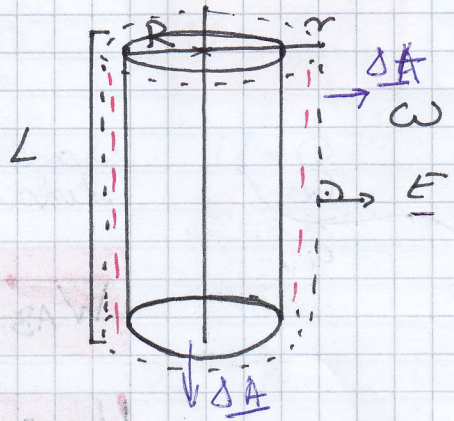 R r
ΔA
ω
L
E
ΔA